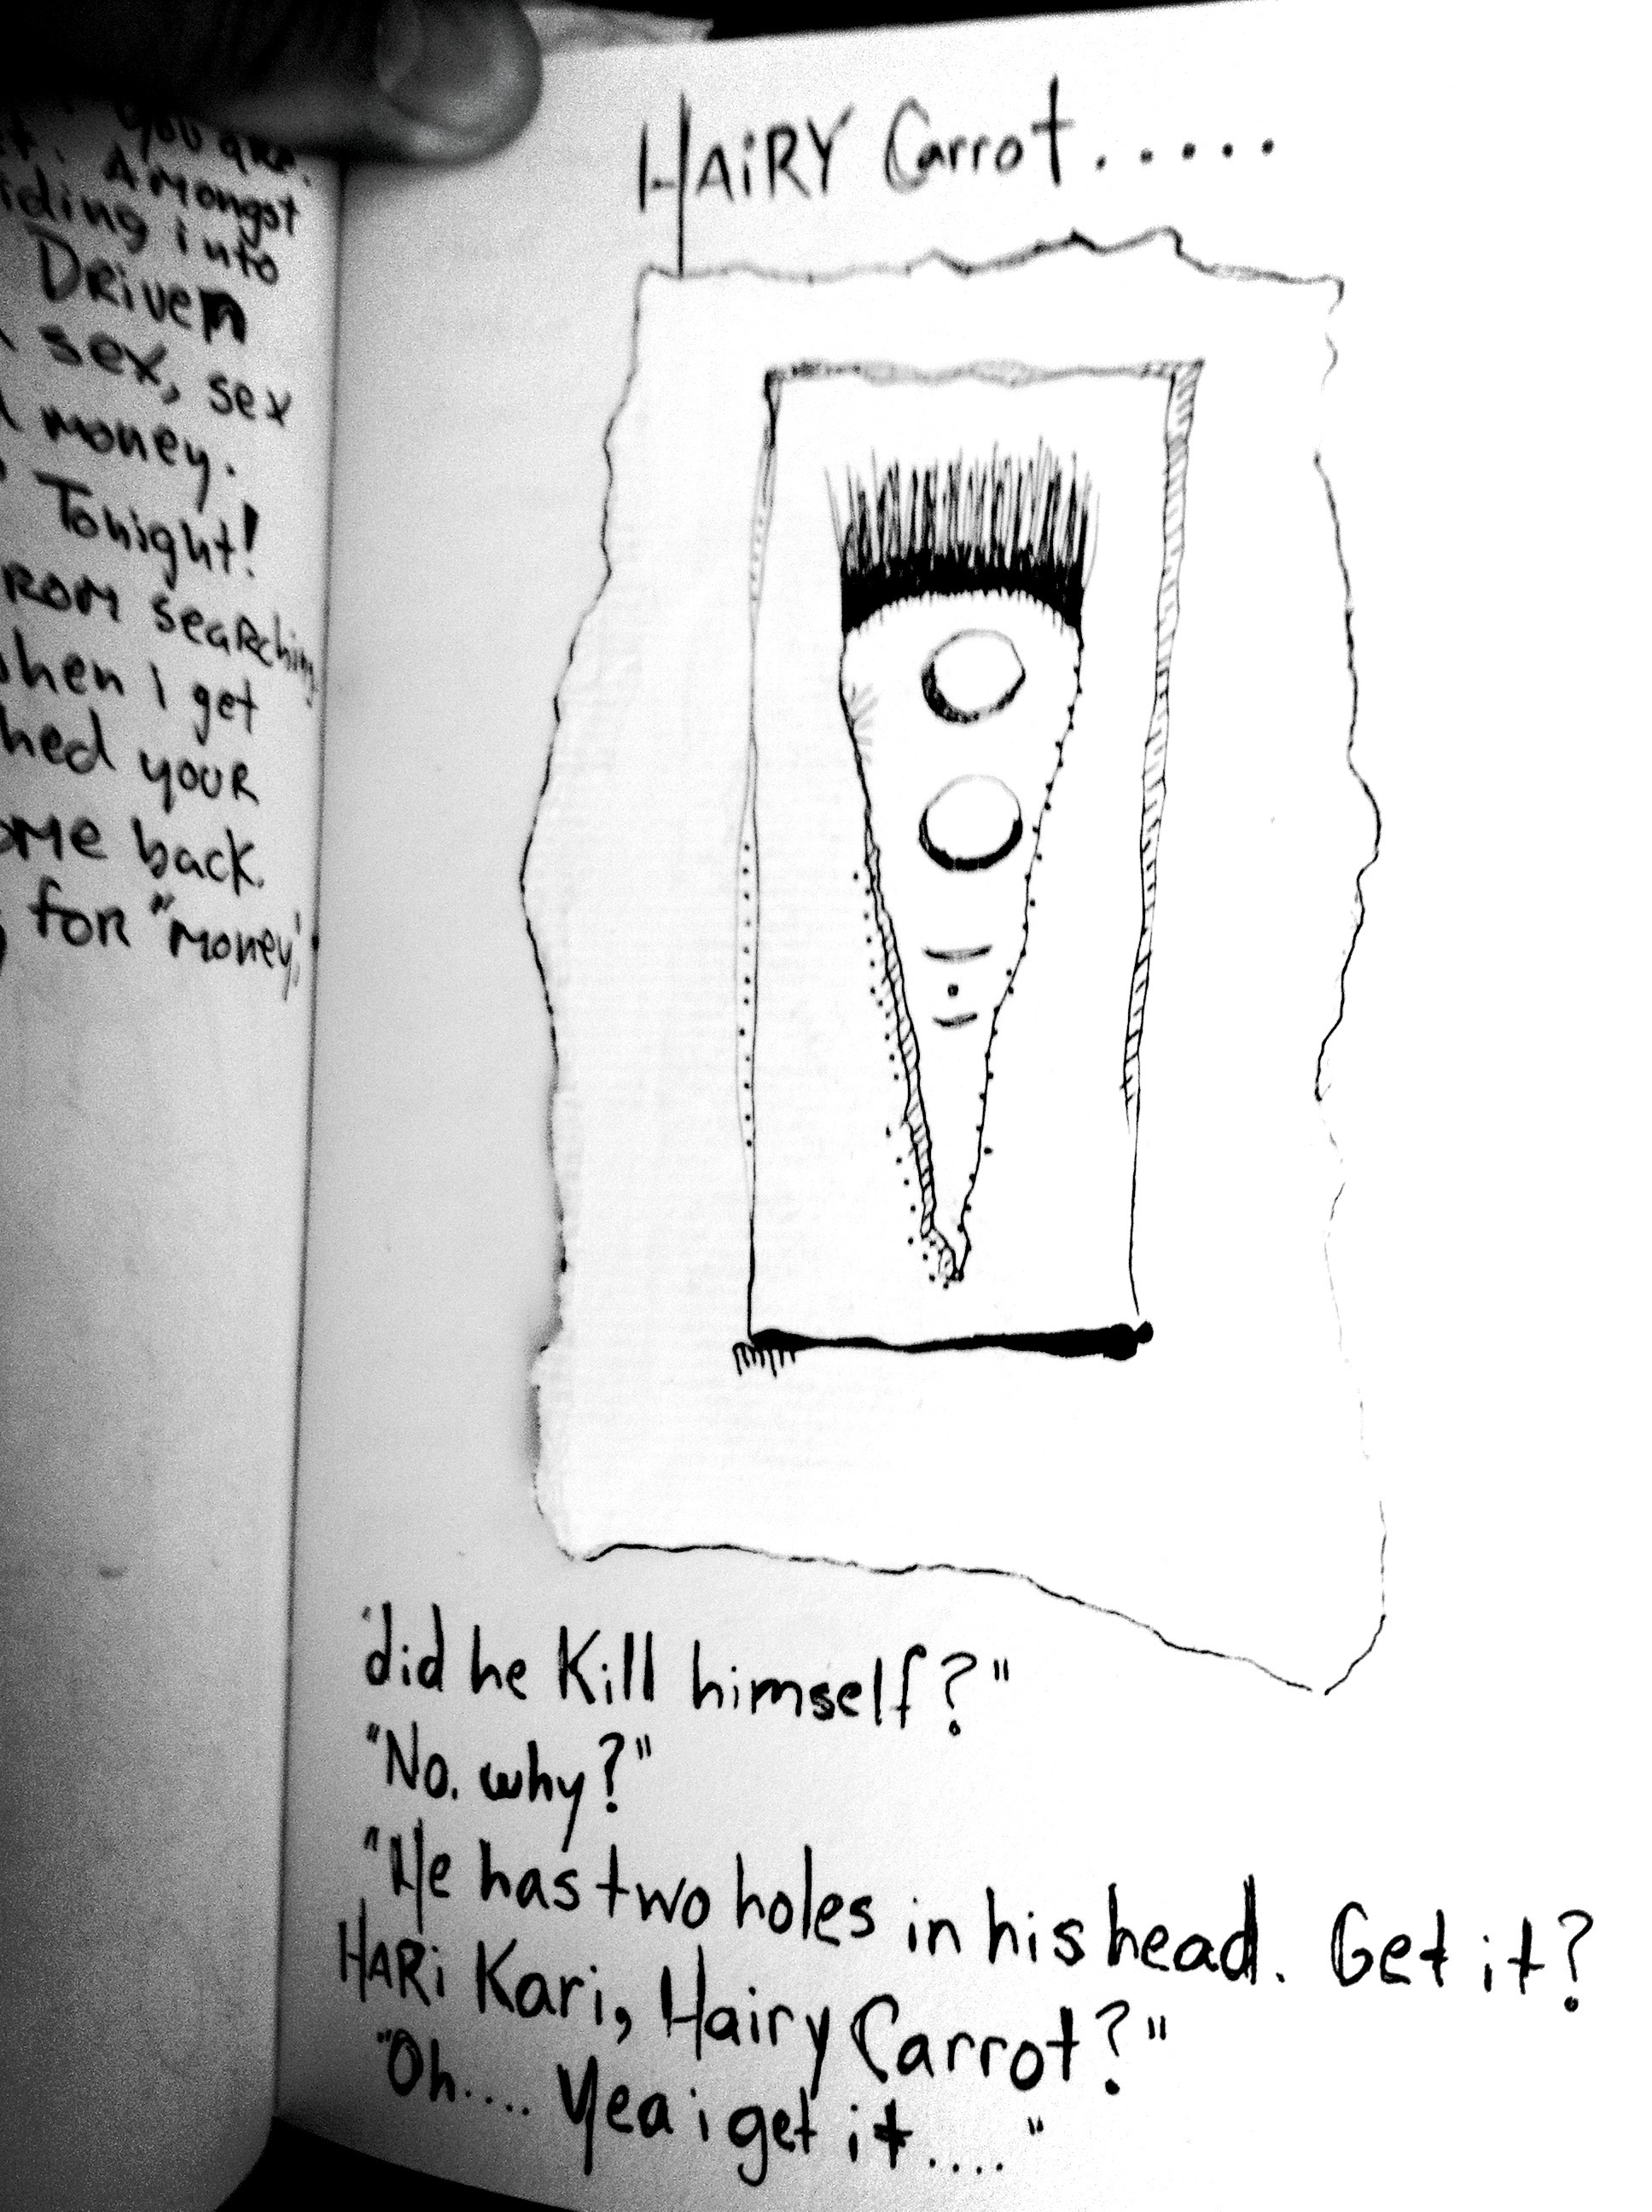 you are.
Amongst
into
DRiven
sex, sex
money.
Tonight!
searching
I get
your
back.
for "money,"
HAiRY Carrot.....
did he Kill himself?"
"No. why?"
"He has two holes in his head. Get it?
HARi Kari, Hairy Carrot?"
"Oh.... Yea i get it...."